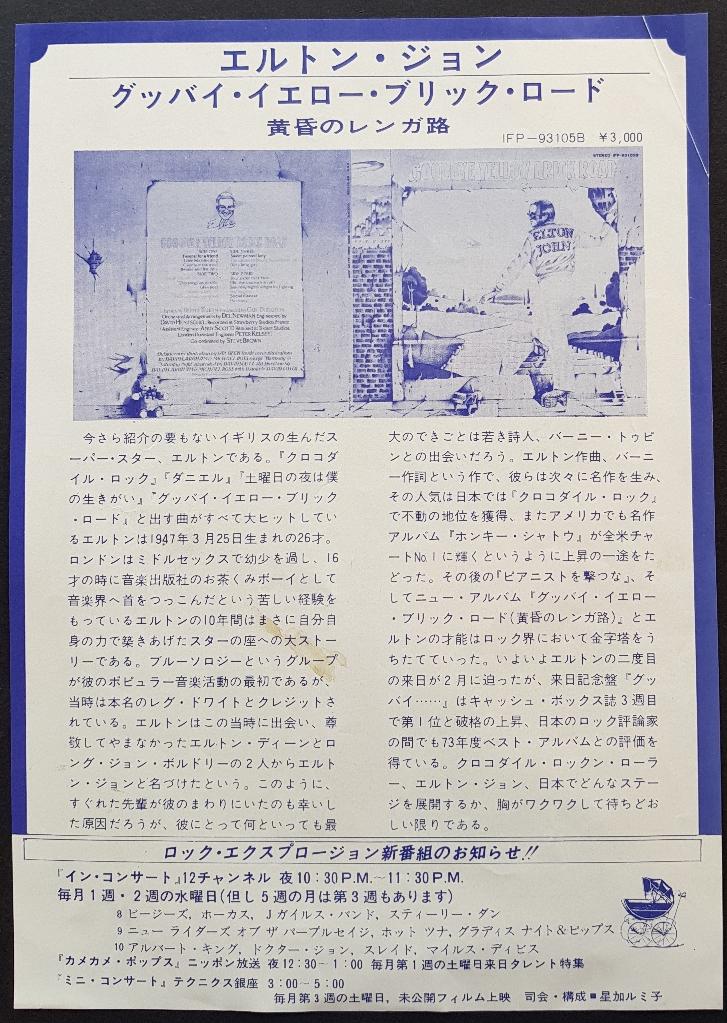 エルトン・ジョン
グッバイ・イエロー・ブリック・ロード
黄昏のレンガ路
IFP-93105B ￥3,000
GOODBYE YELLOW BRICK ROAD
ELTON
JOHN
今さら紹介の要もないイギリスの生んだス
ーパー・スター、エルトンである。『クロコダ
イル・ロック』『ダニエル』『土曜日の夜は僕
の生きがい』〝グッバイ・イエロー・ブリック
・ロード』と出す曲がすべて大ヒットしてい
るエルトンは1947年3月25日生まれの26才。
ロンドンはミドルセックスで幼少を過し、16
才の時に音楽出版社のお茶くみボーイとして
音楽界へ首をつっこんだという苦しい経験を
もっているエルトンの10年間はまさに自分自
身の力で築きあげたスターの座への大ストー
リーである。ブルーソロジーというグループ
が彼のポピュラー音楽活動の最初であるが、
当時は本名のレグ・ドワイトとクレジットさ
れている。エルトンはこの当時に出会い、尊
敬してやまなかったエルトン・ディーンとロ
ング・ジョン・ボルドリーの2人からエルト
ン・ジョンと名づけたという。このように、
すぐれた先輩が彼のまわりにいたのも幸いし
た原因だろうが、彼にとって何といっても最
大のできごとは若き詩人、バーニー・トゥピ
ンとの出会いだろう。エルトン作曲、バーニ
ー作詞という作で、彼らは次々に名作を生み、
その人気は日本では『クロコダイル・ロック』
で不動の地位を獲得、またアメリカでも名作
アルバム『ホンキー・シャトウ』が全米チャ
ートNo.1に輝くというように上昇の一途をた
どった。その後の『ピアニストを撃つな』、そ
してニュー・アルバム『グッバイ・イエロー・
ブリック・ロード(黄昏のレンガ路)』とエ
ルトンの才能はロック界において金字塔をう
ちたてていった。いよいよエルトンの二度目
の来日が2月に迫ったが、来日記念盤『グッ
バイ……』はキャッシュ・ボックス誌3週目
で第1位と破格の上昇、日本のロック評論家
の間でも73年度ベスト・アルバムとの評価を
得ている。クロコダイル・ロックン・ローラ
ー、エルトン・ジョン、日本でどんなステー
ジを展開するか、胸がワクワクして待ちどお
しい限りである。
ロック・エクスプロージョン新番組のお知らせ!!
『イン・コンサート』12チャンネル 夜10:30P.M.～11:30P.M.
毎月1週・2週の水曜日(但し5週の月は第3週もあります)
8 ビージーズ, ホーカス, Jガイルス・バンド, スティーリー・ダン
9 ニュー ライダーズ オブ ザ パープルセイジ, ホット ツナ, グラディス ナイト&ピップス
10 アルバート・キング, ドクター・ジョン, スレイド, マイルス・デイビス
『カメカメ・ポップス』ニッポン放送 夜12:30-1:00 毎月第1週の土曜日来日タレント特集
『ミニ・コンサート』テクニクス銀座 3:00-5:00
毎月第3週の土曜日, 未公開フィルム上映 司会・構成■星加ルミ子